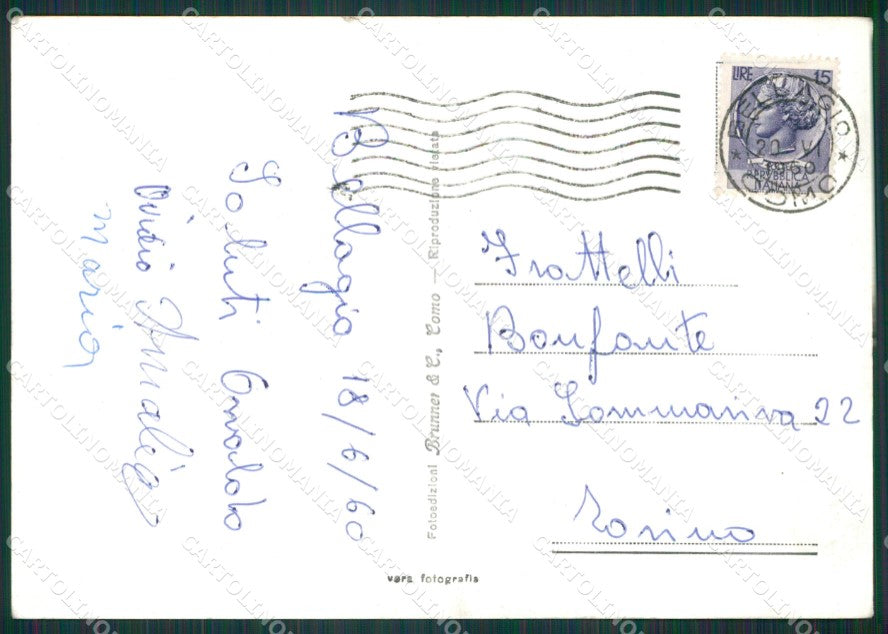 Bellagio 18/6/60
Saluti Osvaldo
Ovidio Amalia
Maria
Fotoedizioni Brunner & C., Como — Riproduzione vietata
vera fotografia
LIRE 15
REPVBBLICA
ITALIANA
BELLAGIO
20 VI
60
COMO
Frattelli
Bonfante
Via Sommariva 22
Torino
CARTOLINOMANIA